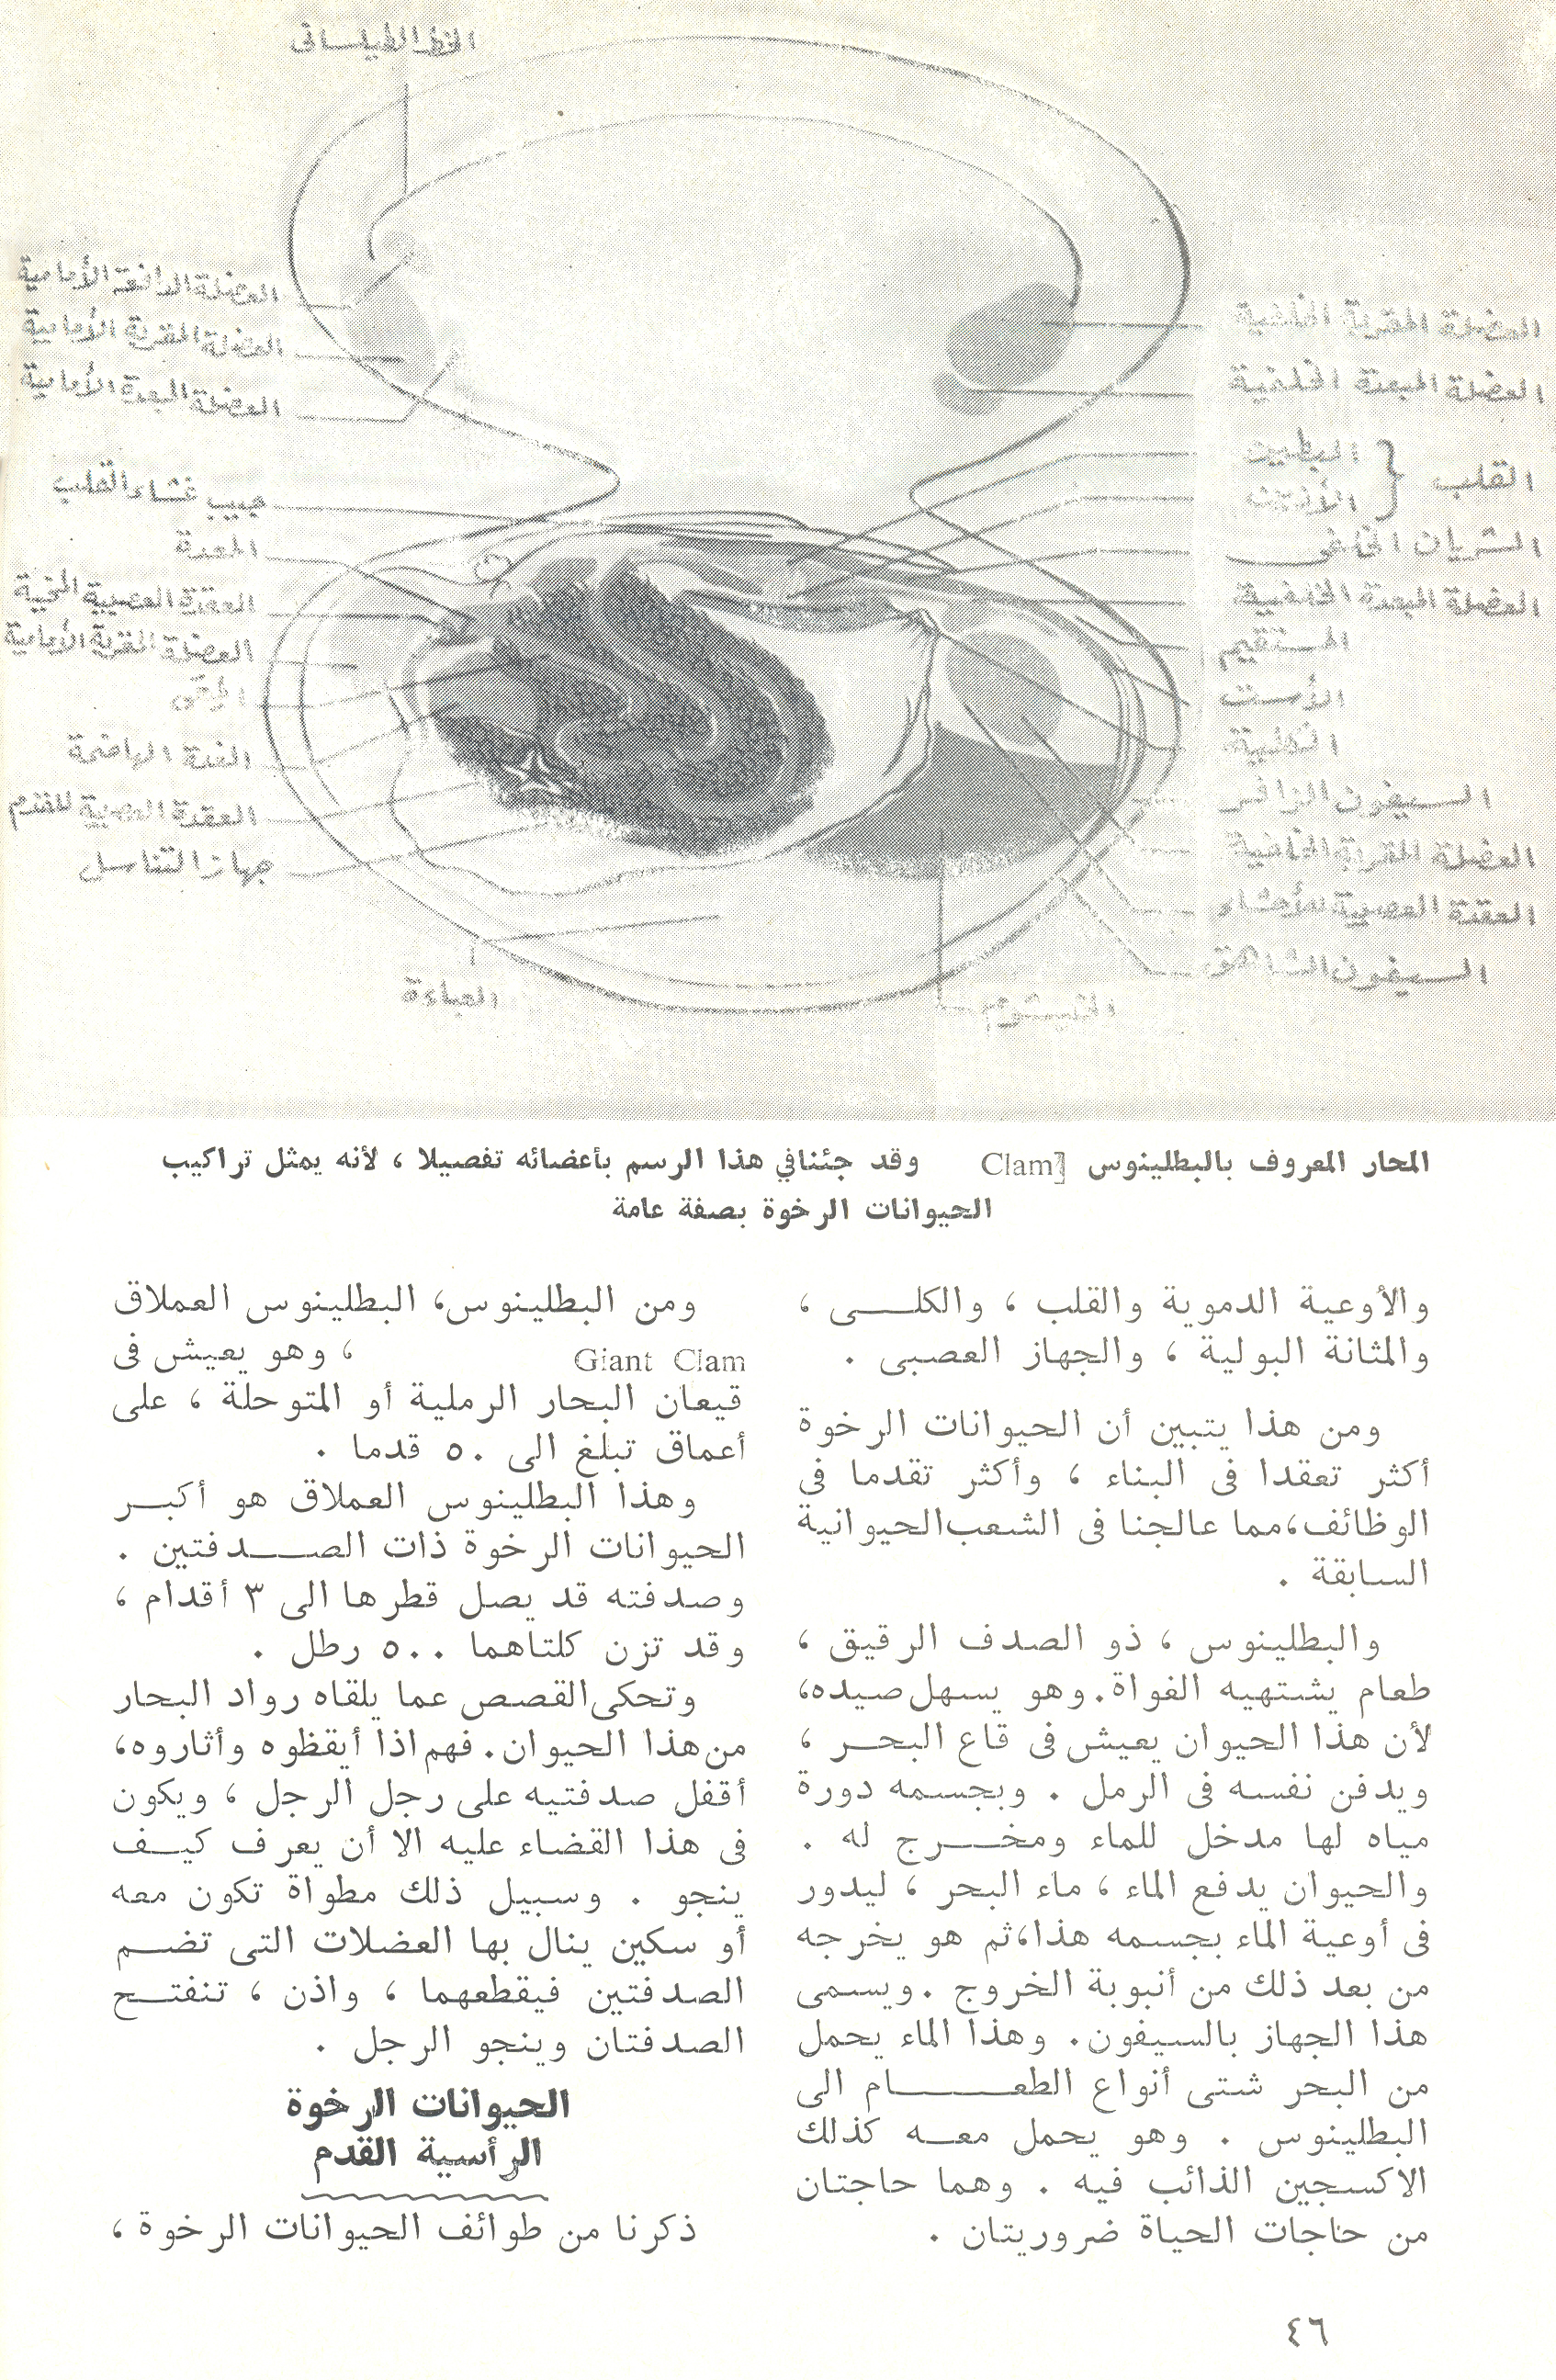 الخط الطيلسانى
العضلة الرافعة الأمامية
العضلة المقربة الأمامية
العضلة المبعدة الأمامية
جيب غشاء القلب
المعدة
العقدة العصبية المخية
العضلة المقربة الأمامية
الغدة الهاضمة
العقدة العصبية للقدم
جهاز التناسل
العباءة
العضلة المقربة الخلفية
العضلة المبعدة الخلفية
القلب { البطين
الأذين
الشريان الخلفى
العضلة المبعدة الخلفية
المستقيم
الأست
الكلية
السيفون الزافر
العضلة المقربة الخلفية
العقدة العصبية للأحشاء
السيفون الشاهق
الخيشوم
المحار المعروف بالبطلينوس Clam وقد جئنافي هذا الرسم بأعضائه تفصيلا ، لأنه يمثل تراكيب
الحيوانات الرخوة بصفة عامة
والأوعية الدموية والقلب ، والكلى ،
والمثانة البولية ، والجهاز العصبى .
ومن هذا يتبين أن الحيوانات الرخوة
أكثر تعقدا فى البناء ، وأكثر تقدما فى
الوظائف،مما عالجنا فى الشعب الحيوانية
السابقة .
والبطلينوس ، ذو الصدف الرقيق ،
طعام يشتهيه الغواة. وهو يسهل صيده،
لأن هذا الحيوان يعيش فى قاع البحر ،
ويدفن نفسه فى الرمل . وبجسمه دورة
مياه لها مدخل للماء ومخرج له .
والحيوان يدفع الماء ، ماء البحر ، ليدور
فى أوعية الماء بجسمه هذا،ثم هو يخرجه
من بعد ذلك من أنبوبة الخروج . ويسمى
هذا الجهاز بالسيفون. وهذا الماء يحمل
من البحر شتى أنواع الطعام الى
البطلينوس . وهو يحمل معه كذلك
الاكسجين الذائب فيه . وهما حاجتان
من حاجات الحياة ضروريتان .
ومن البطلينوس، البطلينوس العملاق
Giant Clam ، وهو يعيش فى
قيعان البحار الرملية أو المتوحلة ، على
أعماق تبلغ الى ٥٠ قدما .
وهذا البطلينوس العملاق هو أكبر
الحيوانات الرخوة ذات الصدفتين .
وصدفته قد يصل قطرها الى ٣ أقدام ،
وقد تزن كلتاهما ٥٠٠ رطل .
وتحكى القصص عما يلقاه رواد البحار
من هذا الحيوان. فهم اذا أيقظوه وأثاروه،
أقفل صدفتيه على رجل الرجل ، ويكون
فى هذا القضاء عليه الا أن يعرف كيف
ينجو . وسبيل ذلك مطواة تكون معه
أو سكين ينال بها العضلات التى تضم
الصدفتين فيقطعهما ، واذن ، تنفتح
الصدفتان وينجو الرجل .
الحيوانات الرخوة
الرأسية القدم
ذكرنا من طوائف الحيوانات الرخوة ،
٤٦